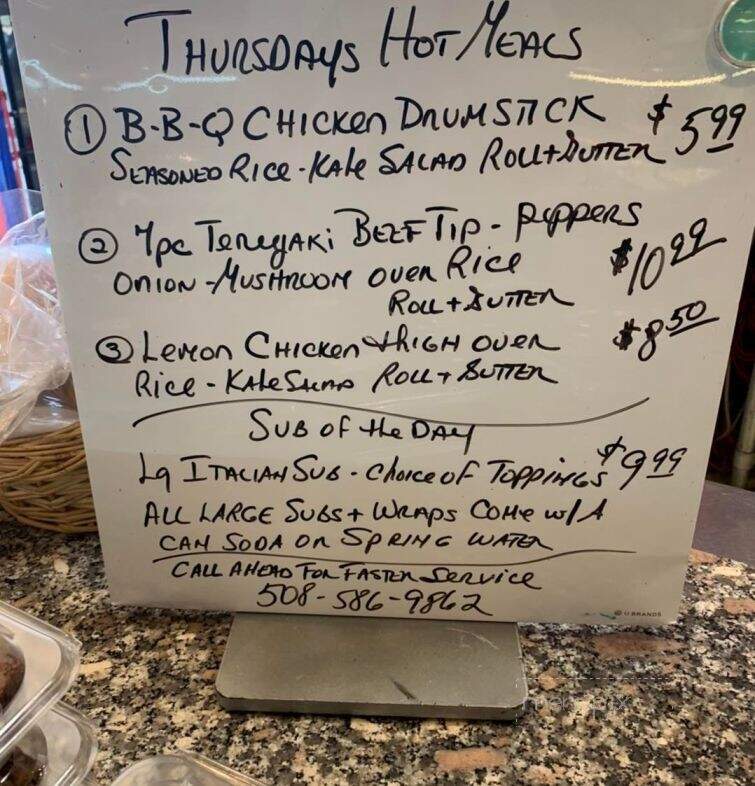 THURSDAYS HOT MEALS
① B-B-Q CHICKEN DRUMSTICK $5.99
SEASONED RICE - KALE SALAD ROLL + BUTTER
② 7pc TERIYAKI BEEF TIP - PEPPERS
ONION - MUSHROOM OVER RICE $10.99
ROLL + BUTTER
③ LEMON CHICKEN THIGH OVER $8.50
RICE - KALE SALAD ROLL + BUTTER
SUB OF the DAY
Lg ITALIAN SUB - Choice of TOPPINGS $9.99
ALL LARGE SUBS + WRAPS COME w/A
CAN SODA OR SPRING WATER
CALL AHEAD FOR FASTER SERVICE
508-586-9862
U BRANDS